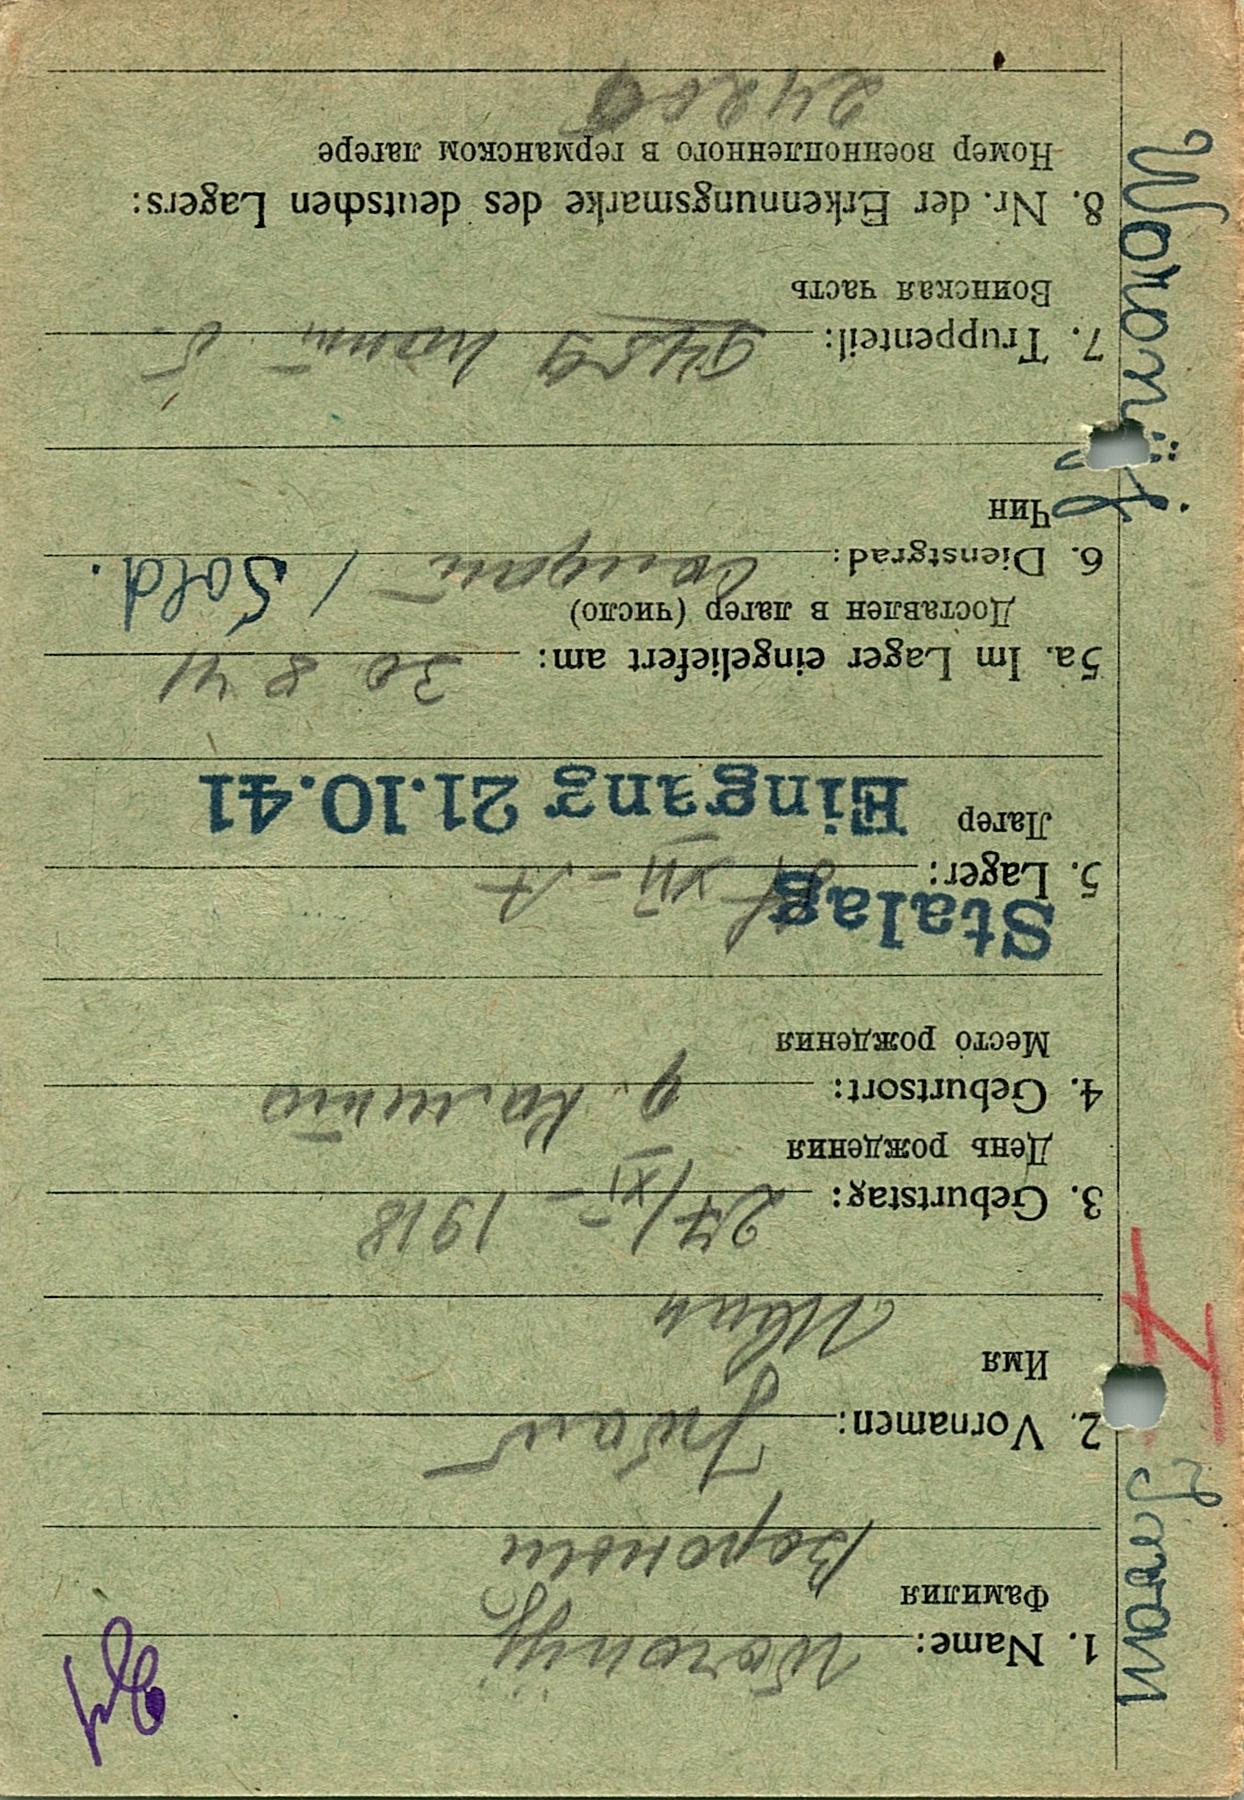 1. Name: Woronijj
Фамилия
Вороний
2. Vornamen: Iwan
Имя
Иван
3. Geburtstag: 27/XI – 1918
День рождения
4. Geburtsort:
Место рождения
Stalag
5. Lager: XVII-A
Лагер
Eingang 21.10.41
5a. Im Lager eingeliefert am: 30 8 41
Доставлен в лагер (число)
6. Dienstgrad: / Sold.
Чин
7. Truppenteil:
Воинская часть
8. Nr. der Erkennungsmarke des deutschen Lagers:
Номер военнопленного в германском лагере
Woronijj Iwan